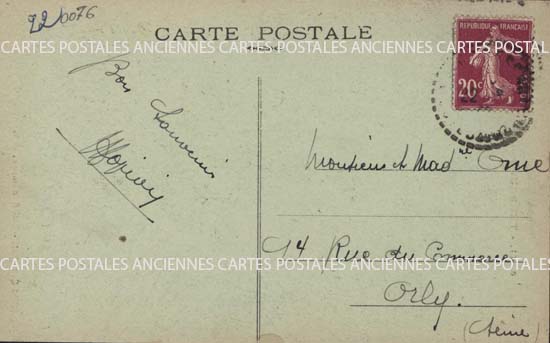 72/0076
CARTE POSTALE
REPUBLIQUE FRANÇAISE
20c
CARTES POSTALES ANCIENNES CARTES POSTALES ANCIENNES CARTES POSTALES ANCIENNES
Bon
Souvenir
Monsieur et Mad
14 Rue du Commerce
CARTES POSTALES ANCIENNES CARTES POSTALES ANCIENNES CARTES POSTALES ANCIENNES
Orly.
(Seine)